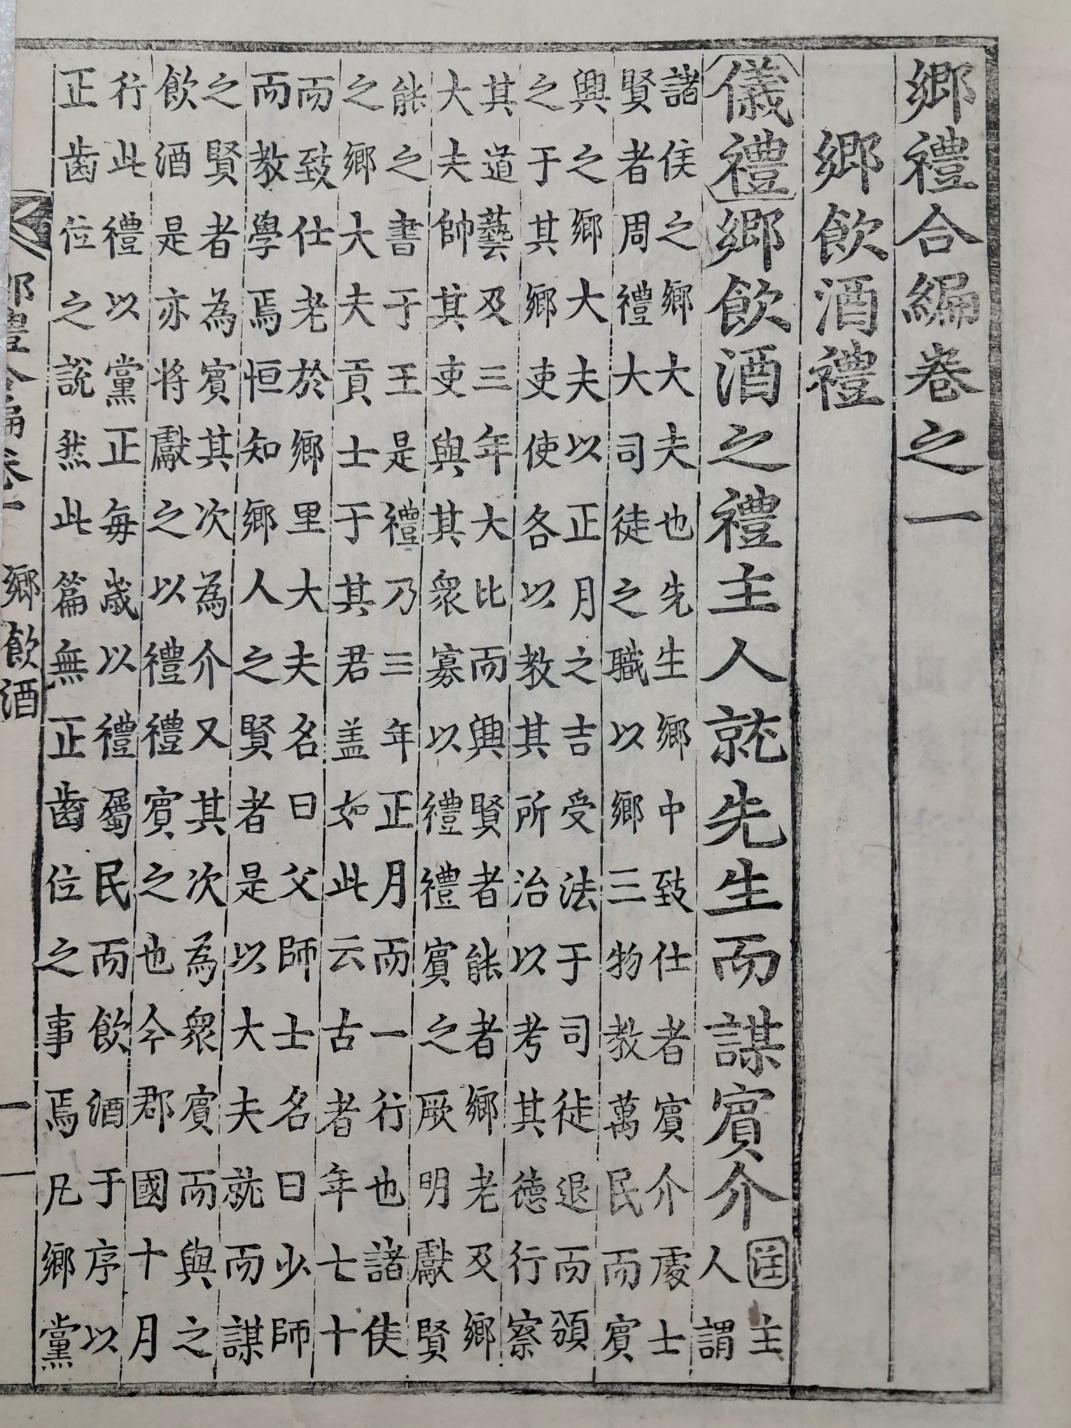 鄉禮合編卷之一
鄉飲酒禮
儀禮鄉飲酒之禮主人就先生而謀賓介注主
人謂
諸侯之鄉大夫也先生鄉中致仕者賓介處士
賢者周禮大司徒之職以鄉三物教萬民而賓
興之鄉大夫以正月之吉受法于司徒退而頒
之于其鄉吏使各以教其所治以考其德行察
其道藝及三年大比而興賢者能者鄉老及鄉
大夫帥其吏與其衆寡以禮禮賓之厥明獻賢
能之書于王是禮乃三年正月而一行也諸侯
之鄉大夫貢士于其君盖如此云古者年七十
而致仕老於鄉里大夫名曰父師士名曰少師
而教學焉恒知鄉人之賢者是以大夫就而謀
之賢者為賓其次為介又其次為衆賓而與之
飲酒是亦將獻之以禮禮賓之也今郡國十月
行此禮以黨正每歲以禮屬民而飲酒于序以
正齒位之說然此篇無正齒位之事焉凡鄉黨
鄉禮合編卷一 鄉飲酒 一